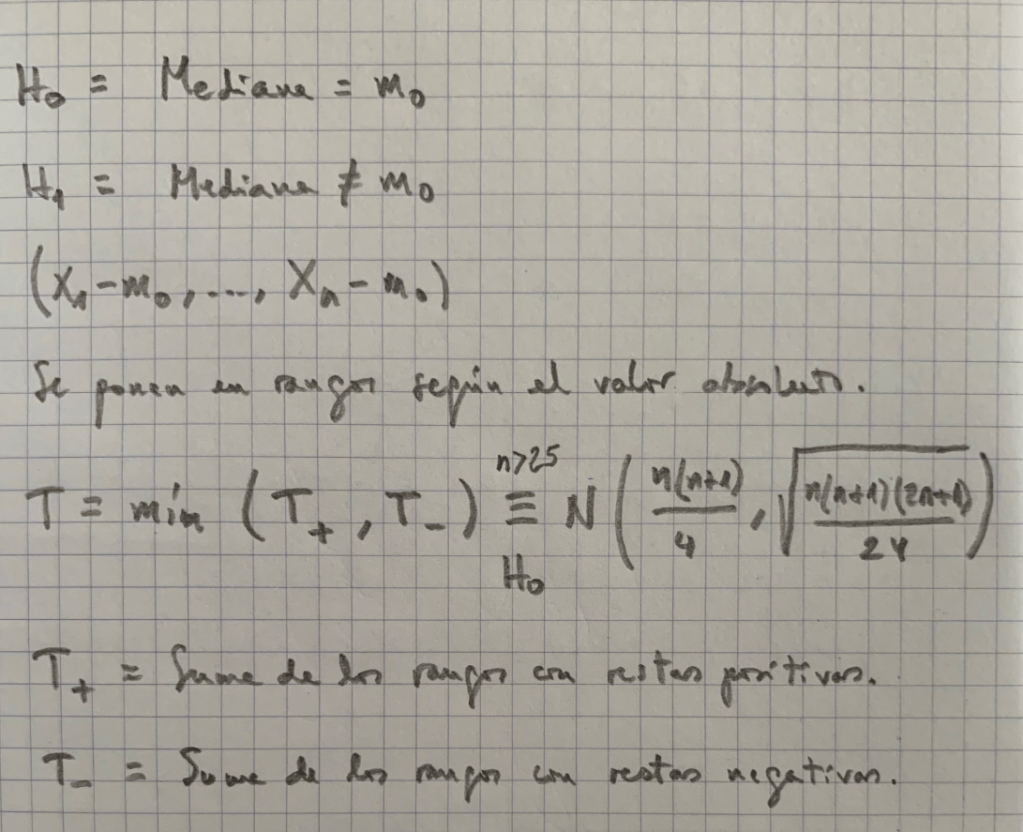 H₀ = Mediana = m₀
H₁ = Mediana ≠ m₀
(X₁-m₀,..., Xₙ-m₀)
Se ponen en rangos según el valor absoluto.
n>25
T = mín (T₊, T₋) ≡ N( n(n+1)/4 , √(n(n+1)(2n+1)/24) )
H₀
T₊ = Suma de los rangos con restas positivas.
T₋ = Suma de los rangos con restas negativas.